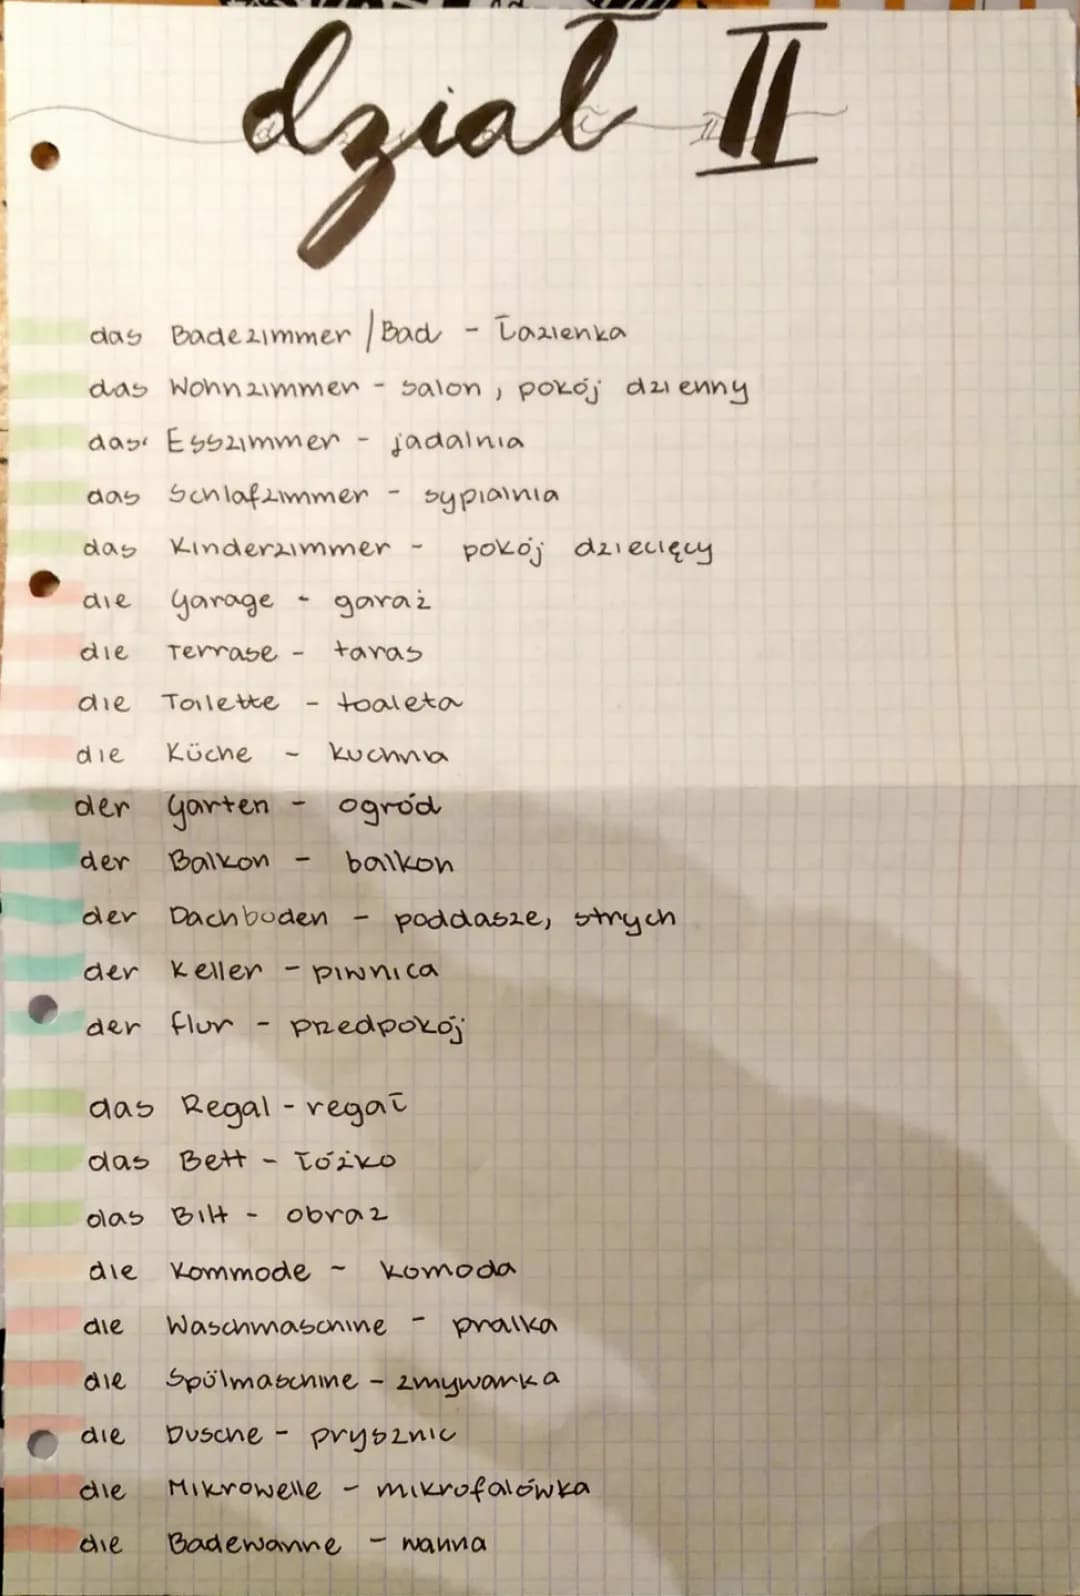 dział II
das Badezimmer / Bad - łazienka
das Wohnzimmer - salon, pokój dzienny
das Esszimmer - jadalnia
das Schlafzimmer - sypialnia
das Kinderzimmer - pokój dziecięcy
die Garage - garaż
die Terrase - taras
die Toilette - toaleta
die Küche - kuchnia
der Garten - ogród
der Balkon - balkon
der Dachboden - poddasze, strych
der Keller - piwnica
der flur - przedpokój
das Regal - regał
das Bett - łóżko
das Bilt - obraz
die Kommode - komoda
die Waschmaschine - pralka
die Spülmaschine - zmywarka
die Dusche - prysznic
die Mikrowelle - mikrofalówka
die Badewanne - wanna